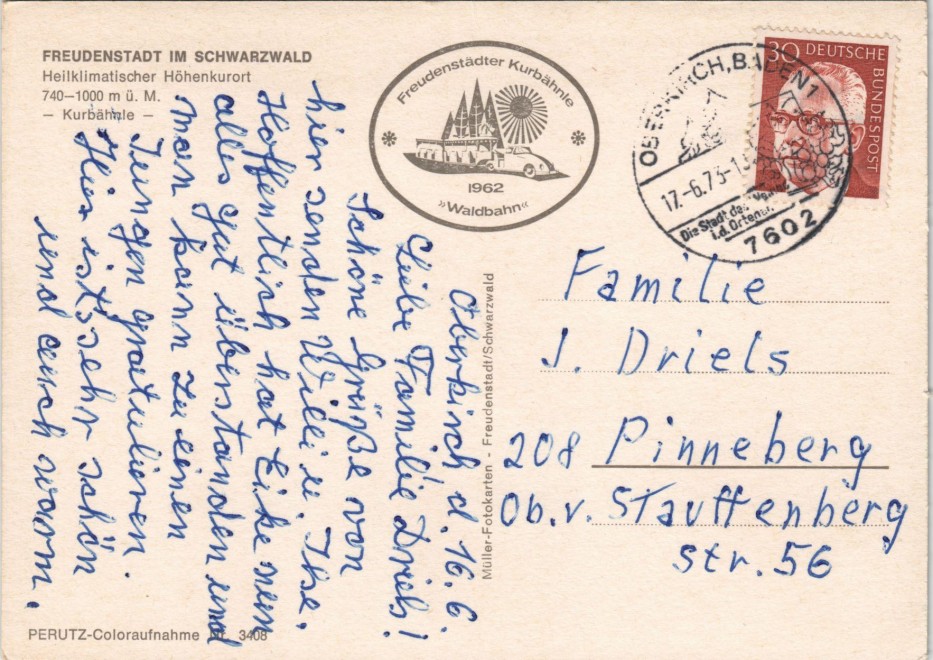 FREUDENSTADT IM SCHWARZWALD
Heilklimatischer Höhenkurort
740–1000 m ü. M.
– Kurbähnle –
Freudenstädter Kurbähnle
1962
»Waldbahn«
30 DEUTSCHE BUNDESPOST
OBERKIRCH, BADEN 1
17.-6.73-1
Die Stadt des
i.d. Ortenau
7602
Oberkirch d. 16.6.
Liebe Familie Driels!
Schöne Grüße von
hier senden Willi u. Ilse.
Hoffentlich hat Eike nun
alles gut überstanden und
man kann zu einen
Jungen gratulieren.
Hier ist sehr schön
und auch warm.
Familie
J. Driels
208 Pinneberg
Ob. v. Stauffenberg
str. 56
Müller-Fotokarten - Freudenstadt/Schwarzwald
PERUTZ-Coloraufnahme Nr. 3408